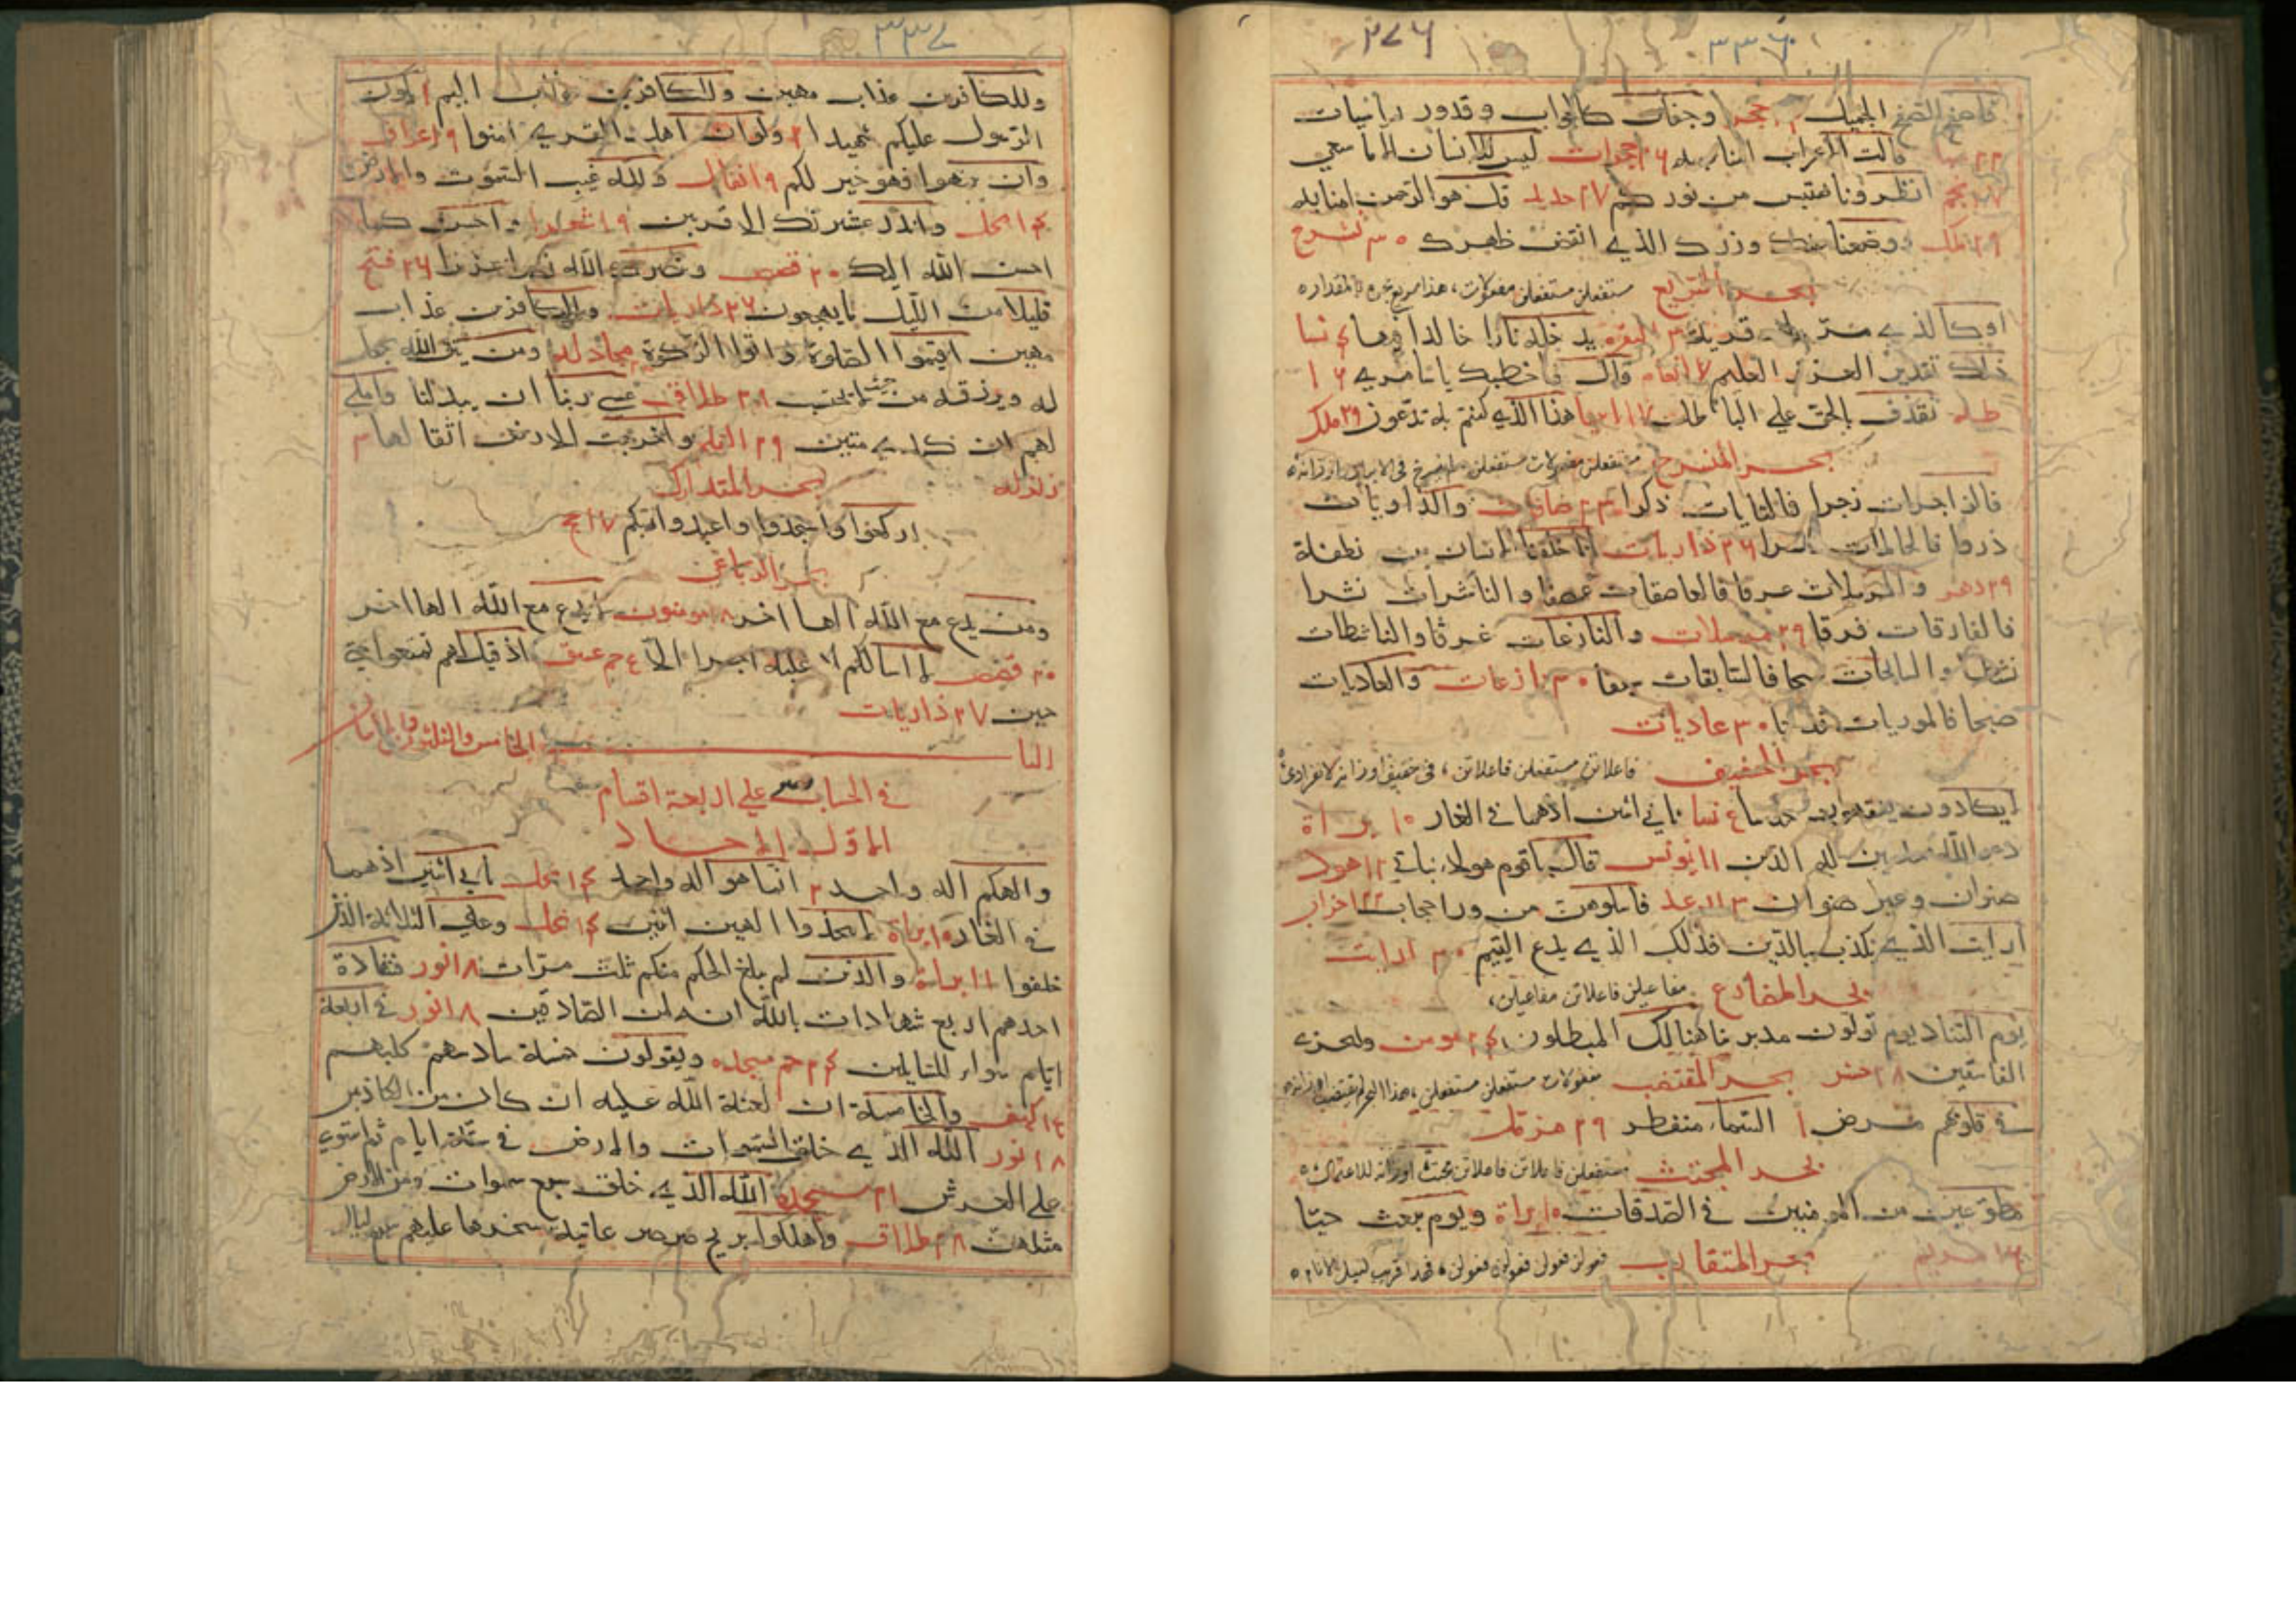 ٣٣٦
٢٧٦
فاصفح الصفح الجميل حجر وجفان كالجواب وقدور راسيات
٢٢ سبا قالت الاعراب امنا ٢٦ حجرات ليس للانسان الا ما سعي
٢٧ نجم انظرونا نقتبس من نوركم ٢٧ حديد قل هو الرحمن امنا به
٢٩ ملك ووضعنا عنك وزرك الذي انقض ظهرك ٣٠ نشرح
بحر السريع مستفعلن مستفعلن مفعولات
او كالذي مر علي قرية ٣ البقره يدخله نارا خالدا فيها ٤ نسا
ذلك تقدير العزيز العليم ٧ انعام قال فما خطبك يا سامري ١٦
طه نقذف بالحق علي الباطل ١٧ انبيا هذا الذي كنتم به تدعون ٢٩ ملك
بحر المنسرح مستفعلن مفعولات مستفعلن
فالزاجرات زجرا فالتاليات ذكرا ٢٣ صافات والذاريات
ذروا فالحاملات ٢٦ ذاريات انا خلقنا الانسان من نطفة
٢٩ دهر والمرسلات عرفا فالعاصفات عصفا والناشرات نشرا
فالفارقات فرقا ٢٩ مرسلات والنازعات غرقا والناشطات
نشطا والسابحات سبحا فالسابقات سبقا ٣٠ نازعات والعاديات
ضبحا فالموريات قدحا ٣٠ عاديات
بحر الخفيف فاعلاتن مستفعلن فاعلاتن
لا يكادون يفقهون حديثا ٤ نسا ثاني اثنين اذهما في الغار ١٠ براة
دعوا الله مخلصين له الدين ١١ يونس قال ياقوم هولاء بناتي ١٢ هود
صنوان وغير صنوان ١٣ رعد فاسلوهن من ورا حجاب ٢٢ احزاب
ارايت الذي يكذب بالدين فذلك الذي يدع اليتيم ٣٠ ارايت
بحر المضارع مفاعيلن فاعلاتن مفاعيلن
يوم التناد يوم تولون مدبرين هنالك المبطلون ٢٤ مومن وليخزي
الفاسقين ٢٨ حشر بحر المقتضب مفعولات مستفعلن مستفعلن
في قلوبهم مرض ١ السماء منفطر ٢٩ مزمل
بحر المجتث مستفعلن فاعلاتن فاعلاتن
مطوعين من المومنين في الصدقات ١٠ براة ويوم يبعث حيا
١٦ مريم بحر المتقارب فعولن فعولن فعولن فعولن
٣٣٧
وللكافرين عذاب مهين وللكافرين عذاب اليم ١ يكون
الرسول عليكم شهيدا ٢ ولو ان اهل القري امنوا ٩ اعراف
وان تنتهوا فهو خير لكم ٩ انفال ولله غيب السموت والارض
١٤ نحل وانذر عشيرتك الاقربين ١٩ شعرا واحسن كما
احسن الله اليك ٢٠ قصص وينصرك الله نصرا عزيزا ٢٦ فتح
قليلا من الليل ما يهجعون ٢٦ ذاريات وللكافرين عذاب
مهين اقيموا الصلوة واتوا الزكوة مجادله ومن يتق الله يجعل
له ويرزقه من حيث لا يحتسب ٢٨ طلاق عسي ربنا ان يبدلنا واملي
لهم ان كيدي متين ٢٩ القلم واخرجت الارض اثقالها ٣
زلزله بحر المتدارك
اركعوا واسجدوا واعبدوا ربكم ١٧ حج
بحر الرباعي
ومن يدع مع الله الها اخر ١٨ مومنون لا يدع مع الله الها اخر
٢٠ قصص لا اسالكم عليه اجرا الا حم عسق اذ قيل لهم تمتعوا حتي
حين ٢٧ ذاريات
البا الخامس والثلثون
في الحساب علي اربعة اقسام
الاول الاحاد
والهكم اله واحد ٢ انما هو اله واحد ١٤ نحل ثاني اثنين اذهما
في الغار ١٠ براة لا تتخذوا الهين اثنين ١٤ نحل وعلي الثلاثة الذين
خلفوا ١١ براة والذين لم يبلغ الحلم منكم ثلث مرات ١٨ نور فشهادة
احدهم اربع شهادات بالله انه لمن الصادقين ١٨ نور في اربعة
ايام سواء للسايلين ٢٤ حم سجده ويقولون خمسة سادسهم كلبهم
كهف والخامسة ان لعنة الله عليه ان كان من الكاذبين
١٨ نور الله الذي خلق السموات والارض في ستة ايام ثم استوي
علي العرش ٢١ سجده الله الذي خلق سبع سموات ومن الارض
مثلهن ٢٨ طلاق واهلكوا بريح صرصر عاتية سخرها عليهم سبع ليال